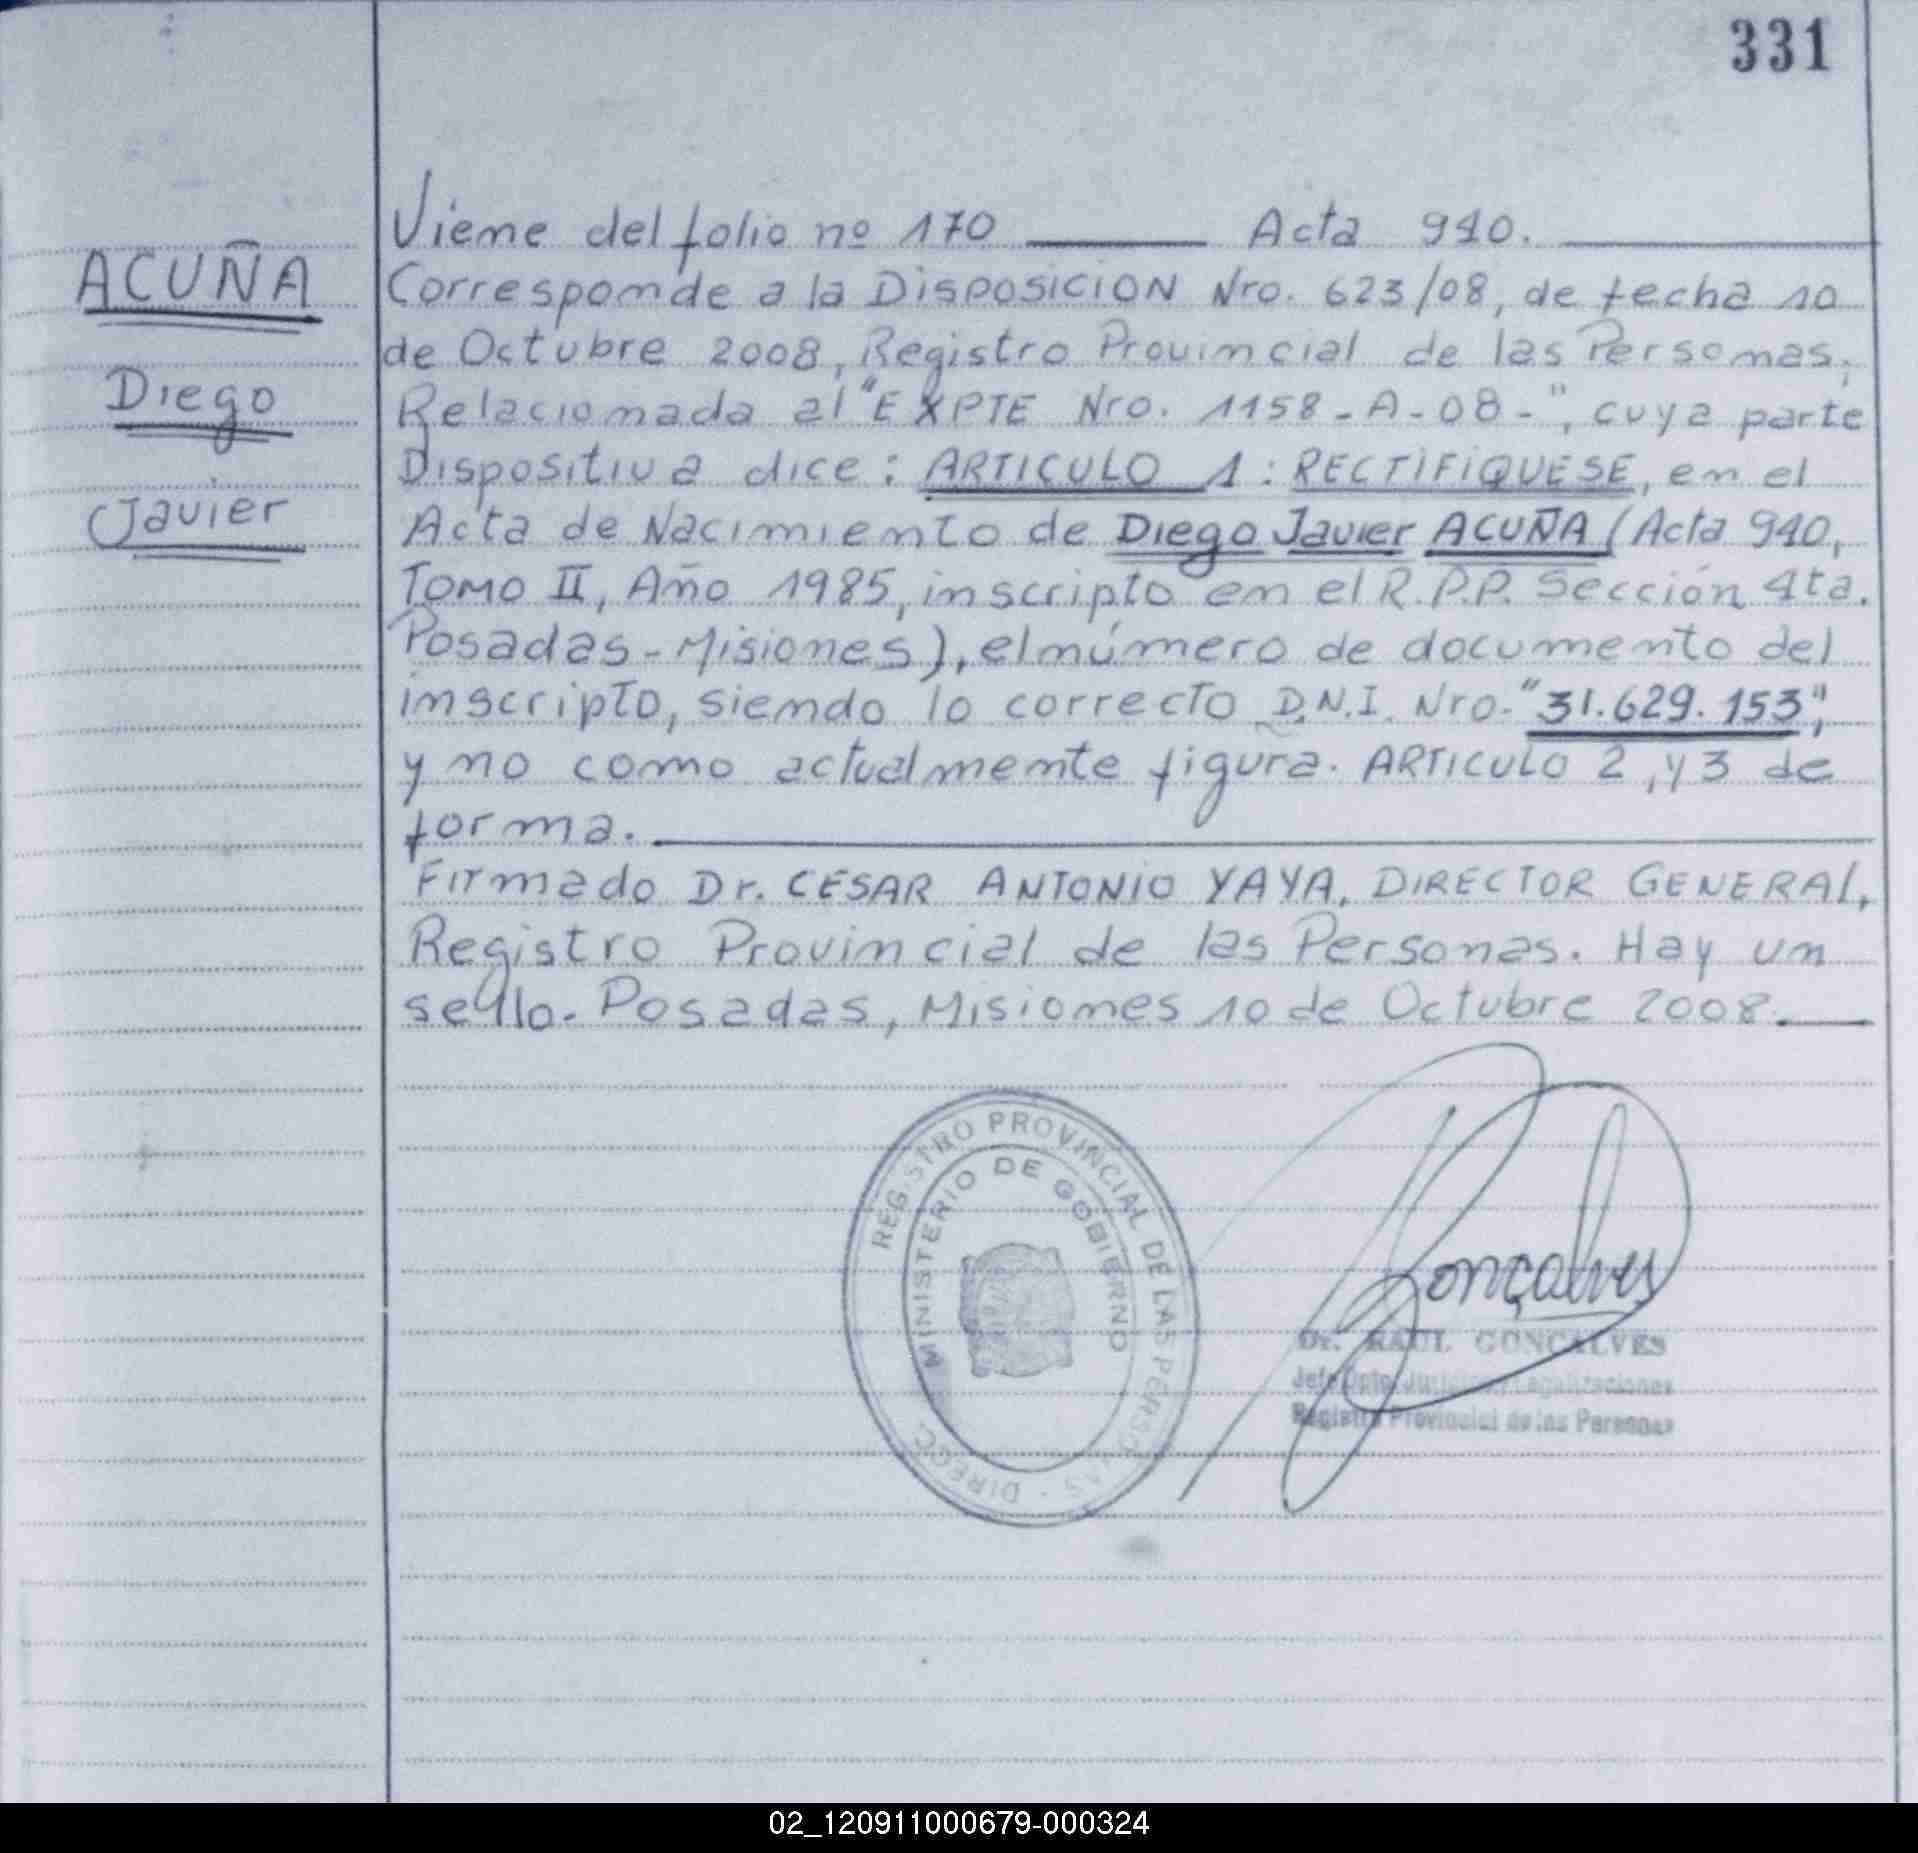 331
ACUÑA
Diego
Javier
Viene del folio nº 170 Acta 940.
Corresponde a la DISPOSICION Nro. 623/08, de fecha 10
de Octubre 2008, Registro Provincial de las Personas,
Relacionada al "EXPTE Nro. 1158-A-08-", cuya parte
Dispositiva dice: ARTICULO 1: RECTIFIQUESE, en el
Acta de Nacimiento de Diego Javier ACUÑA (Acta 940,
TOMO II, Año 1985, inscripto en el R.P.P. Sección 4ta.
Posadas-Misiones), el número de documento del
inscripto, siendo lo correcto D.N.I. Nro. "31.629.153",
y no como actualmente figura. ARTICULO 2, y 3 de
forma.
Firmado Dr. CESAR ANTONIO YAYA, DIRECTOR GENERAL,
Registro Provincial de las Personas. Hay un
sello. Posadas, Misiones 10 de Octubre 2008.
REGISTRO PROVINCIAL DE LAS PERSONAS - DIRECC.
MINISTERIO DE GOBIERNO
Gonçalves
Dr. RAUL GONCALVES
Jefe Dpto. Legalizaciones
Registro Provincial de las Personas
02_120911000679-000324